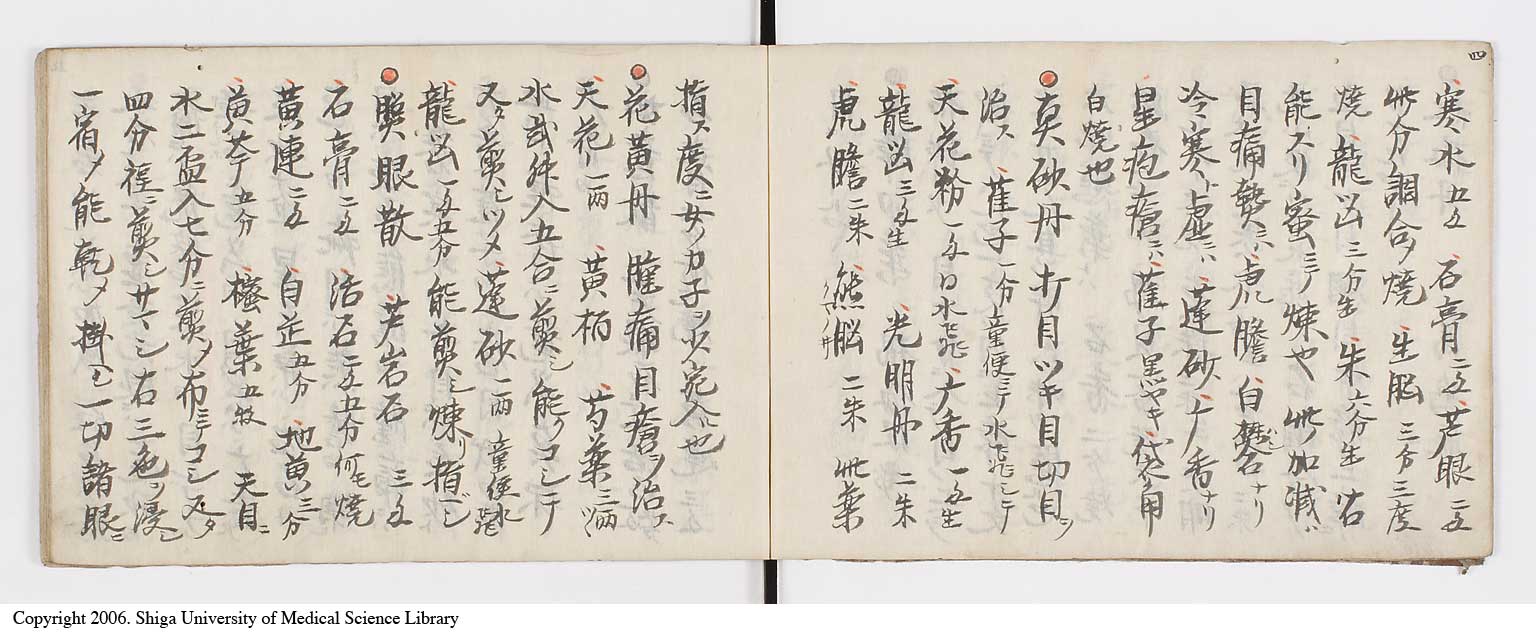 四
寒水五匁 石膏二匁 芒眼二匁
此分調合〆焼 生脳 三分三度
焼 龍凶 三分生 朱六分生 右
能スリ蜜ニテ煉也 此加減ハ
目痛熱ニハ虎膽 白礬石ナリ
冷寒ハ虚ニハ蓬砂 丁香ナリ
星疱瘡ニハ 萑子黒ヤキ 袋角
白焼也
真砂丹 打目ツキ目切目ヲ
治ス 萑子一分童便ニテ水飛シテ
天花粉一匁口水飛 丁香一匁生
龍凶三匁生 光明丹 二朱
虎膽二朱 熊脳 二朱 此薬
クマノ井
指ス度ニ女ノカ子ヲ少宛入ル也
花黄丹 腫痛目瘡ヲ治ス
天花一両 黄栢 芍薬三両ツヽ
水貳舛入五合ニ煎シ能クコシテ
又タ煎シツメ蓬砂一両 童便水飛
龍凶一匁五分能煎シ煉リ指ベシ
照眼散 芦岩石 三匁
石膏二匁 活石二匁五分何モ焼
黄連二匁 白芷五分 地黄三分
黄芩五分 櫁葉五枚 天目ニ
水二盃入七分ニ煎〆布ニテコシ又タ
四分程ニ煎シサマシ右三色ヲ浸シ
一宿〆能乾〆掛ヨ一切諸眼ニ
Copyright 2006. Shiga University of Medical Science Library